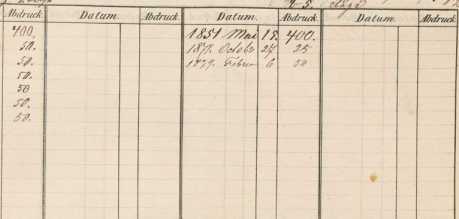 Abdruck Datum. Abdruck Datum. Abdruck Datum. Abdruck
400. 1851 Mai 18. 400.
50. 187. Octobr 27 25
50. 1879. Febur 6 50
50.
50
50.
50.